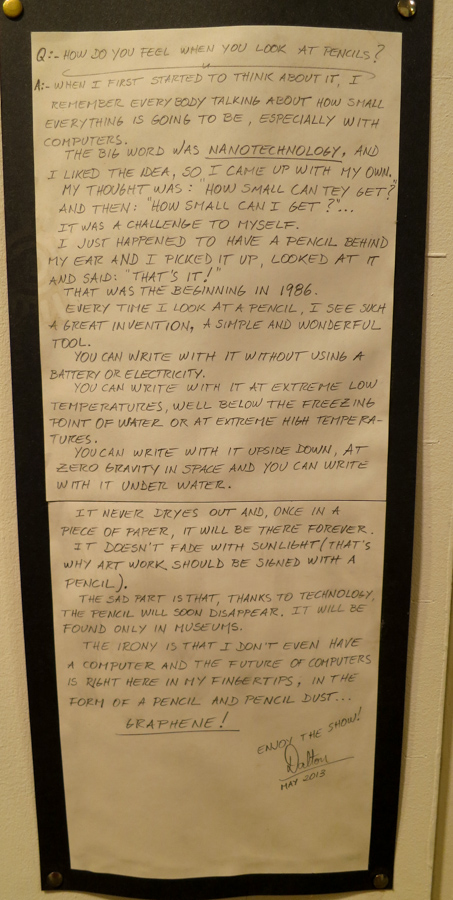 Q:- HOW DO YOU FEEL WHEN YOU LOOK AT PENCILS?
A:- WHEN I FIRST STARTED TO THINK ABOUT IT, I
REMEMBER EVERYBODY TALKING ABOUT HOW SMALL
EVERYTHING IS GOING TO BE, ESPECIALLY WITH
COMPUTERS.
THE BIG WORD WAS NANOTECHNOLOGY, AND
I LIKED THE IDEA, SO I CAME UP WITH MY OWN.
MY THOUGHT WAS: "HOW SMALL CAN TEY GET?"
AND THEN: "HOW SMALL CAN I GET?"...
IT WAS A CHALLENGE TO MYSELF.
I JUST HAPPENED TO HAVE A PENCIL BEHIND
MY EAR AND I PICKED IT UP, LOOKED AT IT
AND SAID: "THAT'S IT!"
THAT WAS THE BEGINNING IN 1986.
EVERY TIME I LOOK AT A PENCIL, I SEE SUCH
A GREAT INVENTION, A SIMPLE AND WONDERFUL
TOOL.
YOU CAN WRITE WITH IT WITHOUT USING A
BATTERY OR ELECTRICITY.
YOU CAN WRITE WITH IT AT EXTREME LOW
TEMPERATURES, WELL BELOW THE FREEZING
POINT OF WATER OR AT EXTREME HIGH TEMPERA-
TURES.
YOU CAN WRITE WITH IT UPSIDE DOWN, AT
ZERO GRAVITY IN SPACE AND YOU CAN WRITE
WITH IT UNDER WATER.
IT NEVER DRYES OUT AND, ONCE IN A
PIECE OF PAPER, IT WILL BE THERE FOREVER.
IT DOESN'T FADE WITH SUNLIGHT (THAT'S
WHY ART WORK SHOULD BE SIGNED WITH A
PENCIL).
THE SAD PART IS THAT, THANKS TO TECHNOLOGY,
THE PENCIL WILL SOON DISAPPEAR. IT WILL BE
FOUND ONLY IN MUSEUMS.
THE IRONY IS THAT I DON'T EVEN HAVE
A COMPUTER AND THE FUTURE OF COMPUTERS
IS RIGHT HERE IN MY FINGERTIPS, IN THE
FORM OF A PENCIL AND PENCIL DUST...
GRAPHENE!
ENJOY THE SHOW!
Dalton
MAY 2013